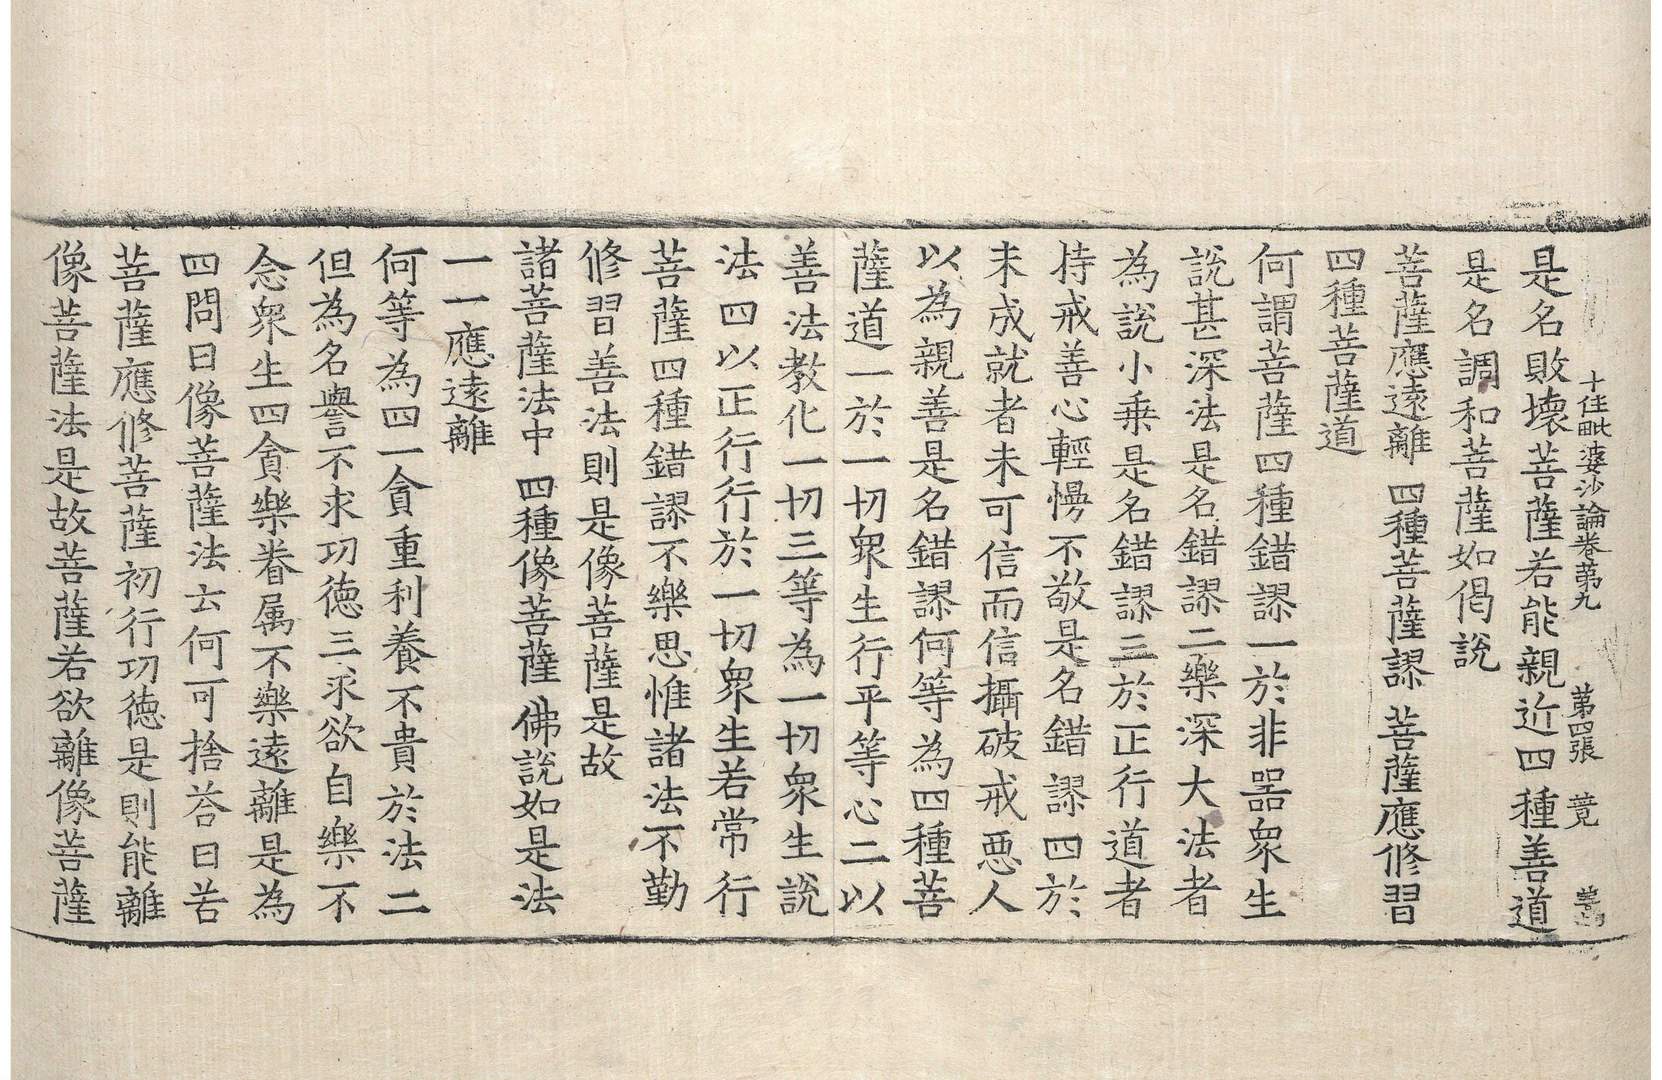 十住毗婆沙論卷苐九 第四張 竟
是名敗壞菩薩若能親近四種善道
是名調和菩薩如偈説
菩薩應遠離 四種菩薩謬 菩薩應修習
四種菩薩道
何謂菩薩四種錯謬一於非器衆生
説甚深法是名錯謬二樂深大法者
為説小乗是名錯謬三於正行道者
持戒善心輕慢不敬是名錯謬四於
未成就者未可信而信攝破戒惡人
以為親善是名錯謬何等為四種菩
薩道一於一切衆生行平等心二以
善法教化一切三等為一切衆生説
法四以正行行於一切衆生若常行
菩薩四種錯謬不樂思惟諸法不勤
修習善法則是像菩薩是故
諸菩薩法中 四種像菩薩 佛説如是法
一一應遠離
何等為四一貪重利養不貴於法二
但為名譽不求功徳三求欲自樂不
念衆生四貪樂眷属不樂遠離是為
四問曰像菩薩法云何可捨荅曰若
菩薩應修菩薩初行功徳是則能離
像菩薩法是故菩薩若欲離像菩薩